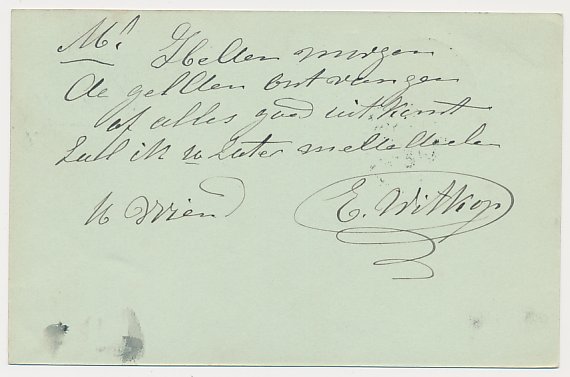 M.
Hellen morgen
de gelden ontvangen
of alles goed uitkomt
zall ik u later mededeelen
U Vriend
E. Witkop